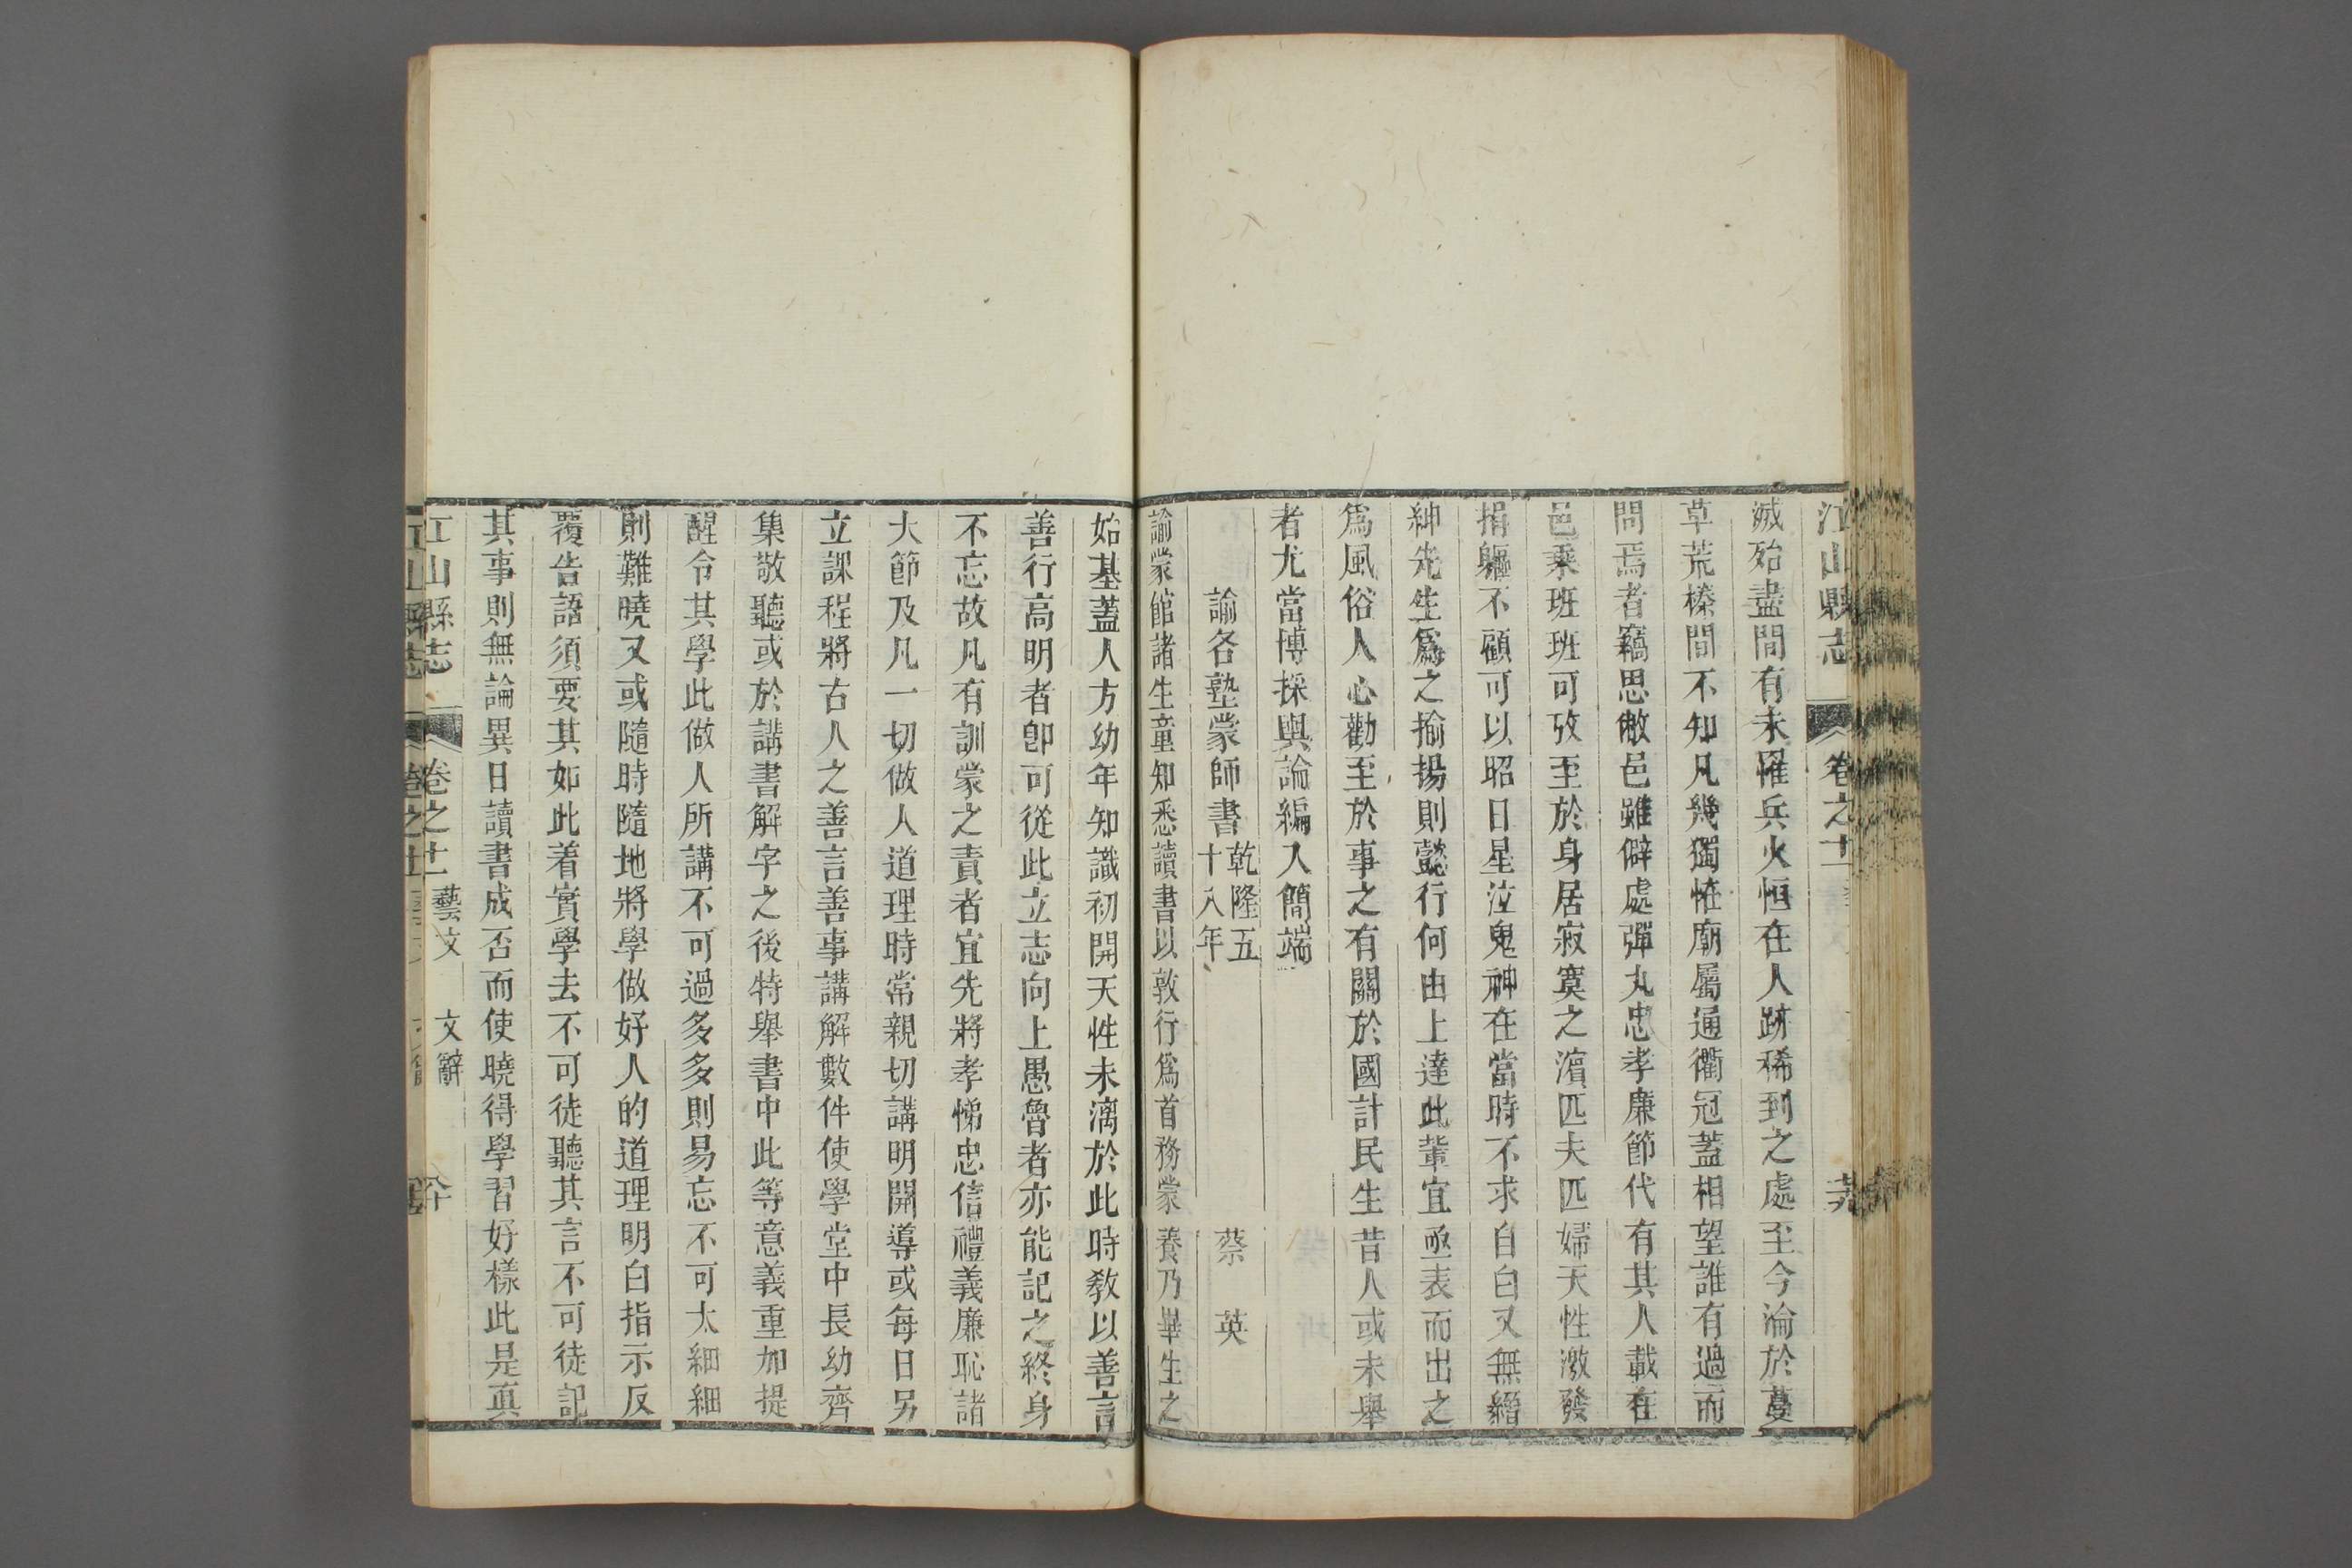 江山縣志 卷之十一
滅殆盡間有未罹兵火恒在人跡稀到之處至今淪於蔓
草荒榛間不知凡幾獨恠廟屬通衢冠蓋相望誰有過而
問焉者竊思敝邑雖僻處彈丸忠孝廉節代有其人載在
邑乘班班可攷至於身居寂寞之濵匹夫匹婦天性激發
捐軀不顧可以昭日星泣鬼神在當時不求自白又無縉
紳先生爲之揄揚則懿行何由上達此輩宜亟表而出之
爲風俗人心勸至於事之有關於國計民生昔人或未舉
者尤當博採輿論編入簡端
諭各塾蒙師書 乾隆五十八年 蔡英
諭蒙館諸生童知悉讀書以敦行爲首務蒙養乃畢生之
始基蓋人方幼年知識初開天性未漓於此時教以善言
善行高明者卽可從此立志向上愚魯者亦能記之終身
不忘故凡有訓蒙之責者宜先將孝悌忠信禮義廉恥諸
大節及凡一切做人道理時常親切講明開導或每日另
立課程將古人之善言善事講解數件使學堂中長幼齊
集敬聽或於講書解字之後特舉書中此等意義重加提
醒令其學此做人所講不可過多多則易忘不可太細細
則難曉又或隨時隨地將學做好人的道理明白指示反
覆告語須要其如此着實學去不可徒聽其言不可徒記
其事則無論異日讀書成否而使曉得學習好樣此是真
江山縣志 卷之十一 藝文 文辭 八十